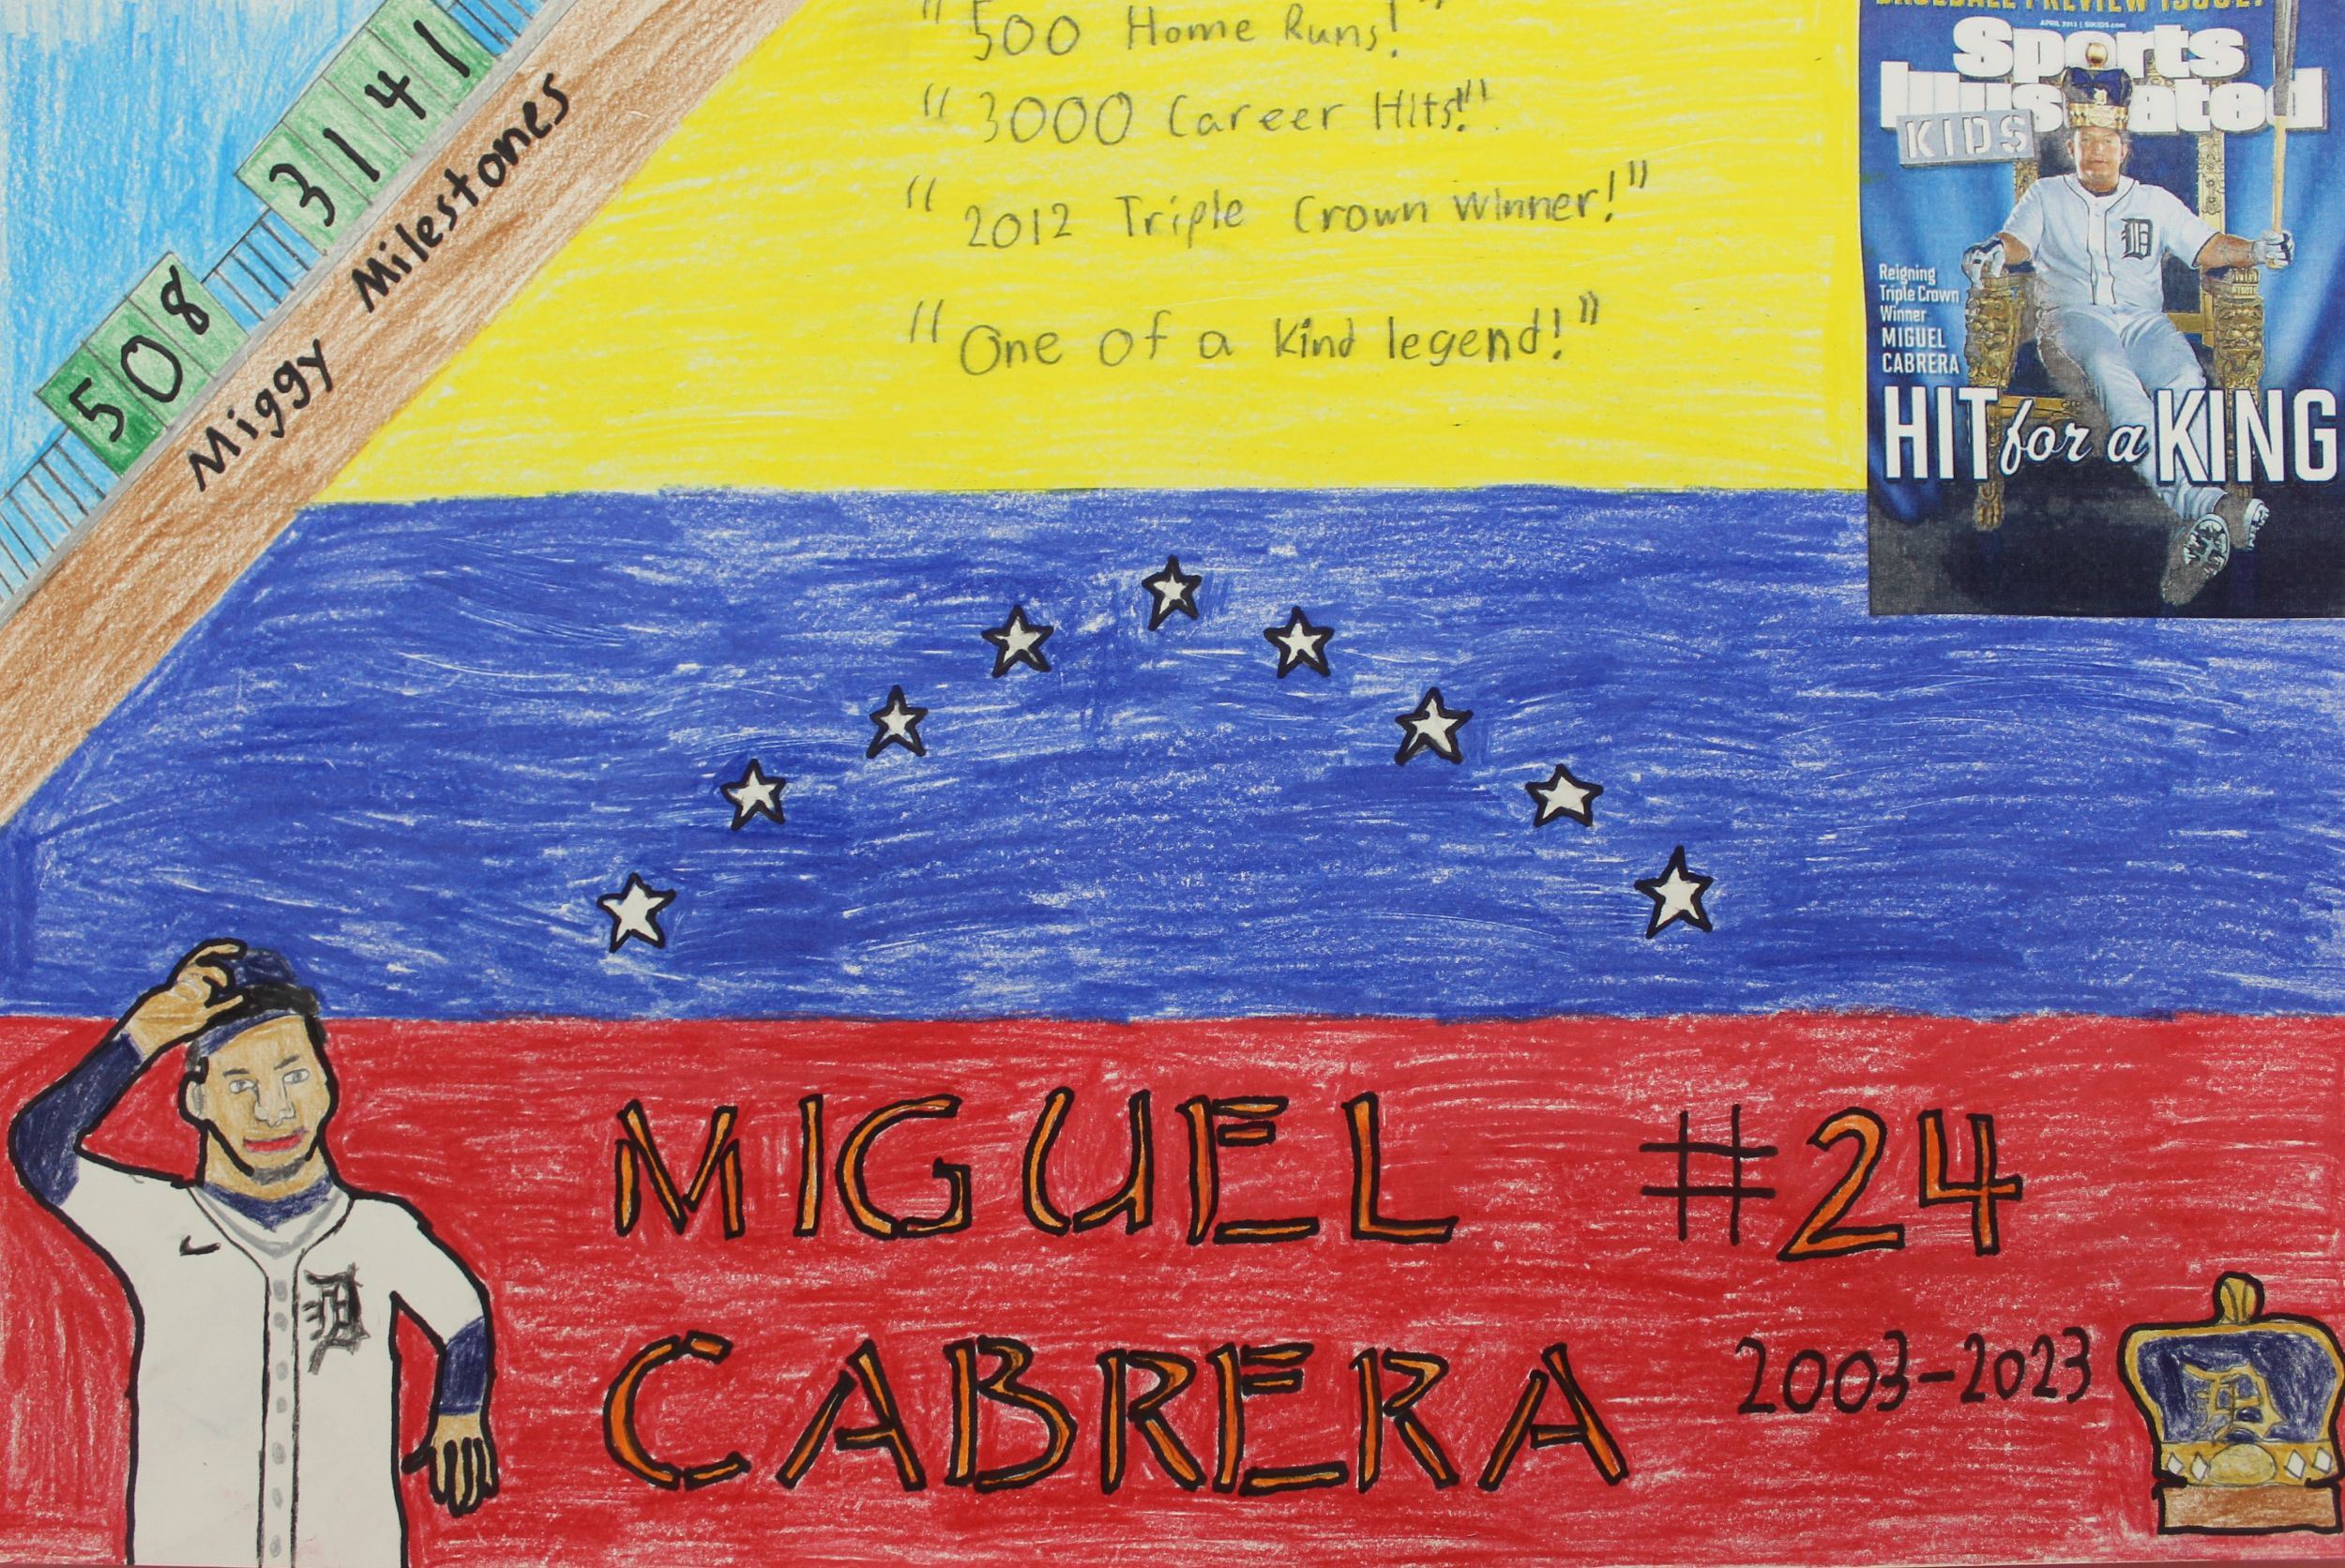 508 3141
Miggy Milestones
"500 Home Runs!"
"3000 Career Hits!"
"2012 Triple Crown Winner!"
"One of a Kind legend!"
BASEBALL PREVIEW ISSUE!
APRIL 2013 | SIKIDS.com
Sports
Illustrated
KIDS
D
Reigning
Triple Crown
Winner
MIGUEL
CABRERA
HIT for a KING
MIGUEL #24
CABRERA 2003-2023
D
D